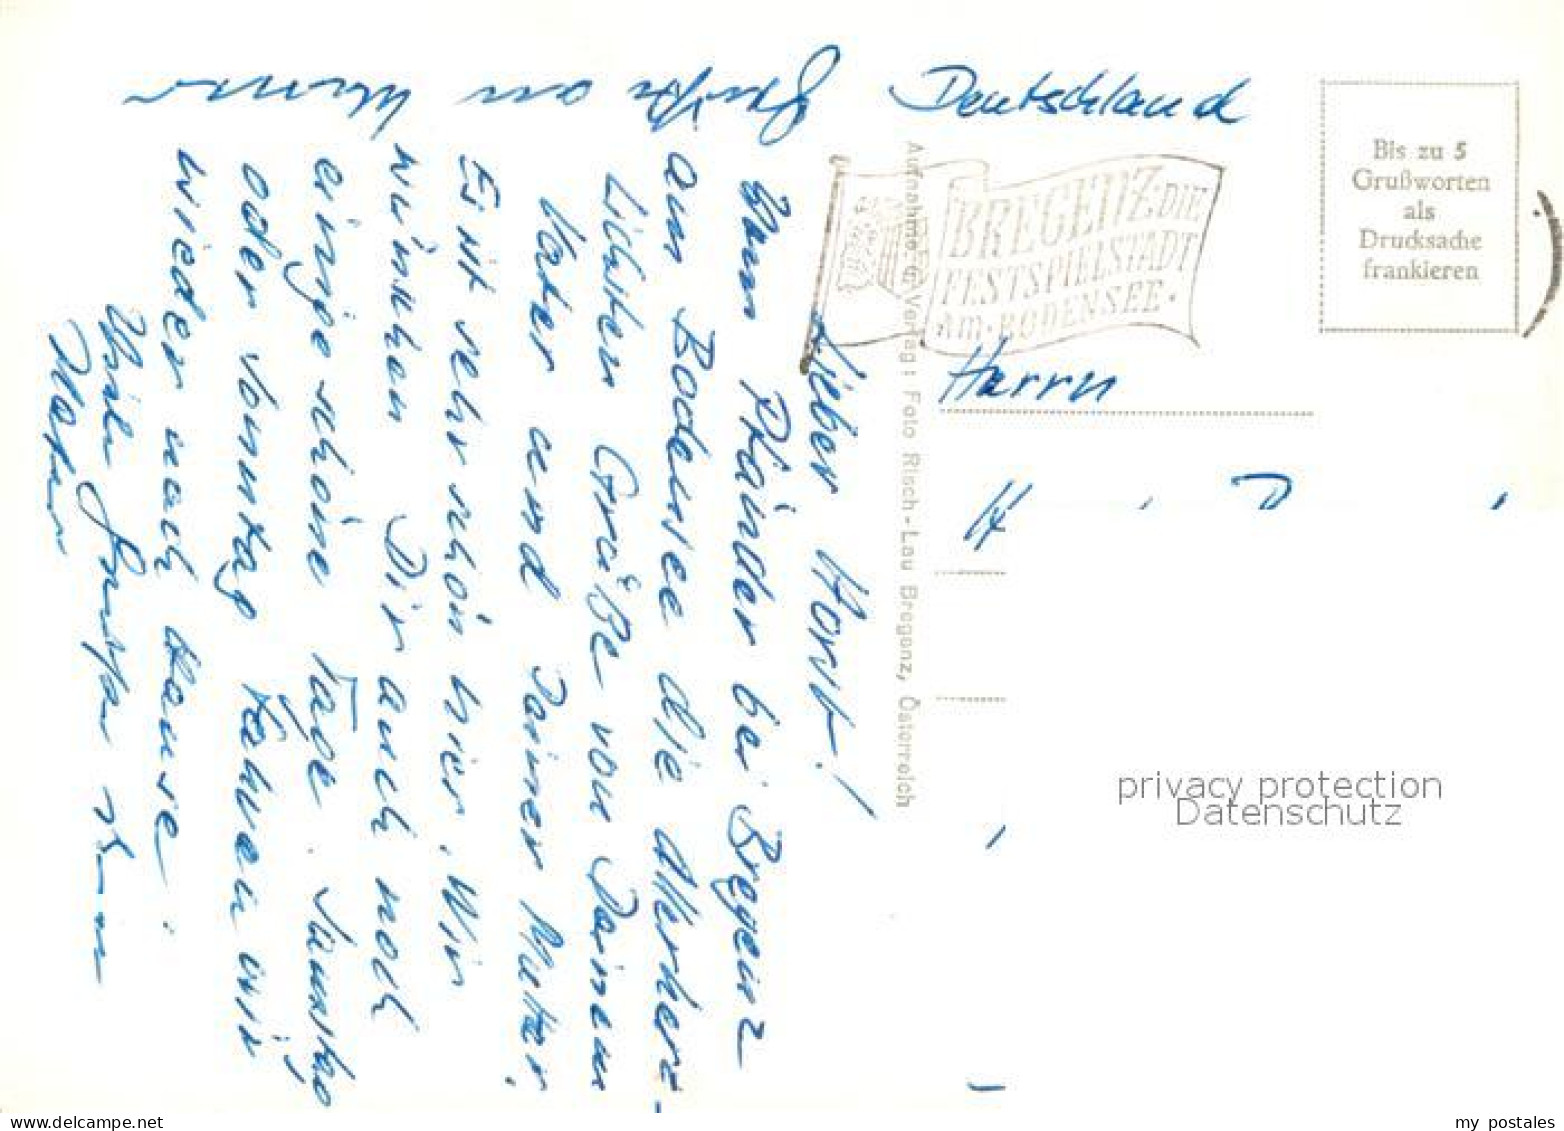 Grüße an
Lieber Horst!
Vom Pfänder bei Bregenz
am Bodensee die Allerherz-
lichsten Grüße von Deinem
Vater und Deiner Mutter.
Es ist sehr schön hier. Wir
wünschen Dir auch noch
einige schöne Tage. Samstag
oder Sonntag fahren wir
wieder nach Hause.
Viele Grüße
Aufnahme u. Verlag: Foto Risch-Lau Bregenz, Österreich
Deutschland
BREGENZ·DIE
FESTSPIELSTADT
·AM·BODENSEE·
Bis zu 5
Grußworten
als
Drucksache
frankieren
Herrn
H
privacy protection
Datenschutz
delcampe.net
my_postales